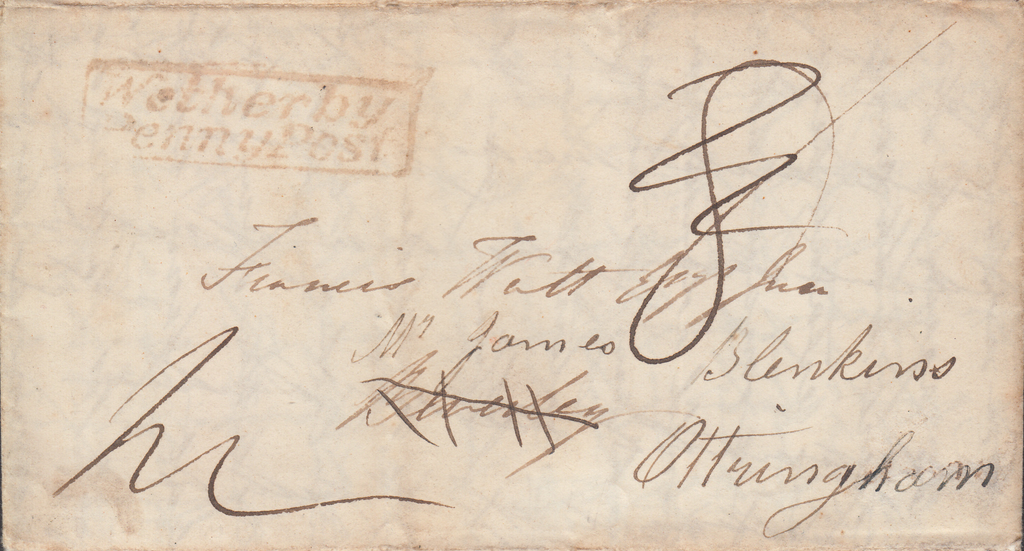 Wetherby
Penny Post
8
Francis Watt Esqr Junr
Mr James Blenkins
Beverley
Ottringham